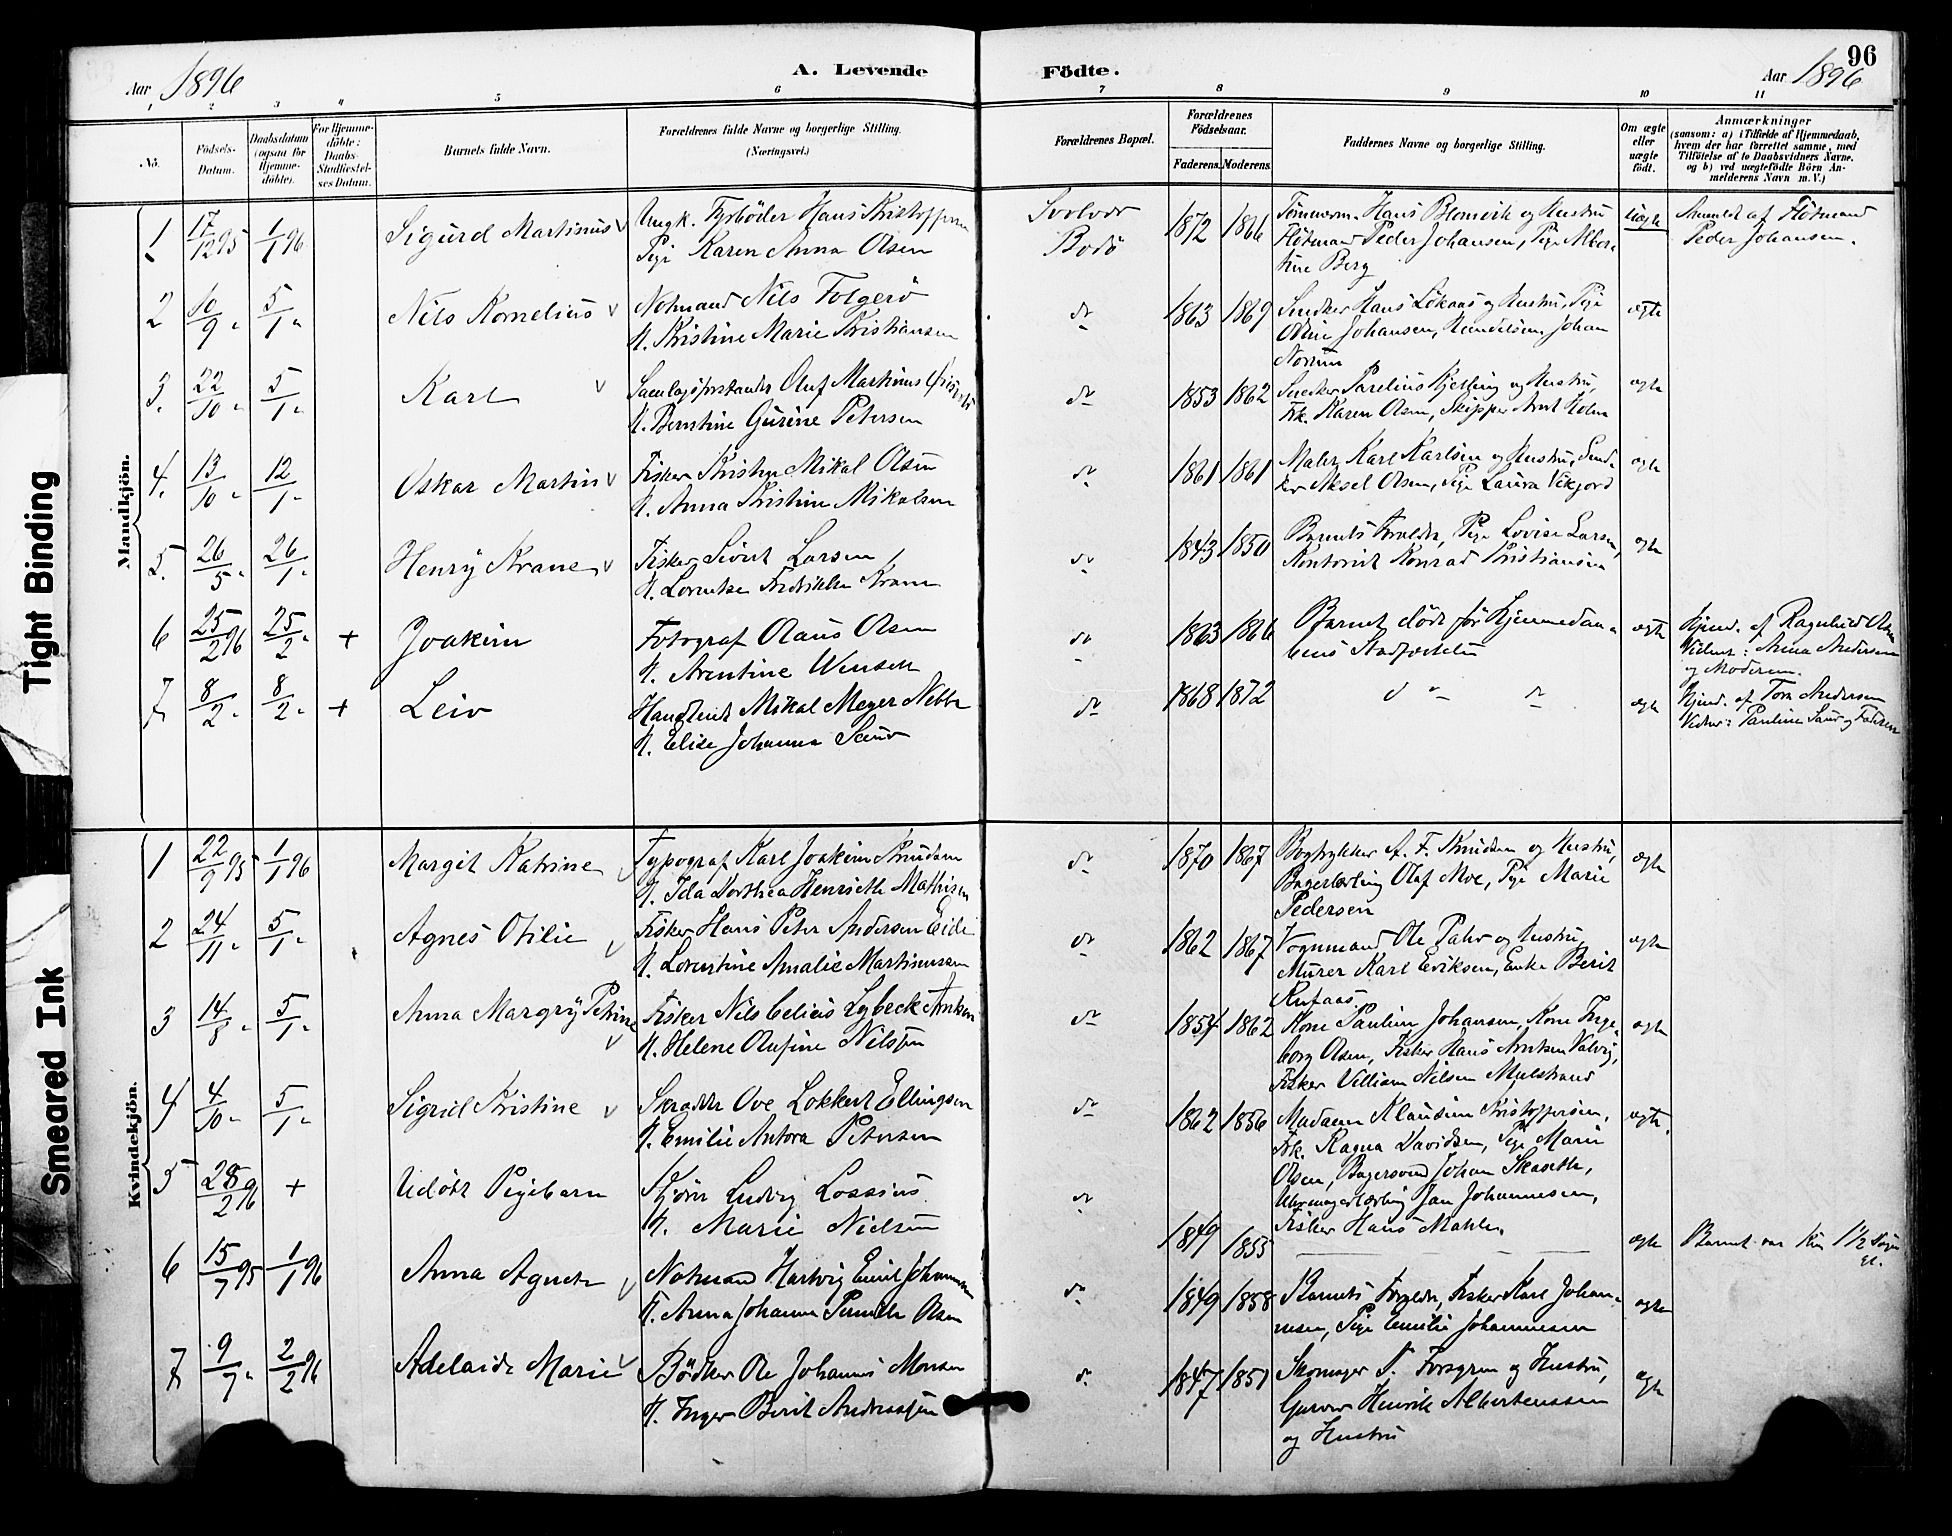 96
Aar 1896
A. Levende
Födte.
Aar 1896
1 2 3 4 5 6 7 8 9 10 11
No.
Födsels-Datum.
Daabsdatum (ogsaa for Hjemmedöbte).
For Hjemmedöbte: Daabs-Stadfæstelses Datum.
Barnets fulde Navn.
Forældrenes fulde Navne og borgerlige Stilling.
(Næringsvei.)
Forældrenes Bopæl.
Forældrenes Födselsaar.
Faderens. Moderens.
Faddernes Navne og borgerlige Stilling.
Om ægte eller uægte födt.
Anmærkninger
(saasom: a) i Tilfælde af Hjemmedaab, hvem der har forrettet samme, med Tilföielse af to Daabsvidners Navne, og b) ved uægtefödte Börn Anmelderens Navn m. V.)
Tight Binding
Smeared Ink
Mandkjön.
1 17/12 95 1/1 96 Sigurd Martinus Ungk. Fyrböder Hans Kristoffersen
Pige Karen Anna Olsen
Bodö
1872 1866
Tömmerm. Hans Blomvik og Hustru
Flötmand Peder Johansen, Pige Albertine Berg
Uægte
Anmeldt af Flötmand
Peder Johansen.
2 10/9 " 5/1 " Nils Kornelius Notmand Nils Folgerö
H. Kristine Marie Kristiansen
do 1863 1869
Snedker Hans Lökaas og Hustru, Pige
Odine Johansen, Johan
ægte
3. 22/10 " 5/1 " Karl Samlagsbestander Oluf Martinus
H. Berntine Gurine Petersen
do 1853 1862
Snedker Parelius Kjelling og Hustru,
Frk. Karen Olsen, Skipper Arnt Holm
ægte
4. 13/10 " 12/1 " Oskar Martin Fisker Kristen Mikal Olsen
H. Anna Kristine Mikalsen
do 1861 1861
Maler Karl Karlsen og Hustru, Snedker Aksel Olsen, Pige Laura Vikjord
ægte
5. 26/5 " 26/1 " Henry Krane Fisker Sivert Larsen
H. Lorentse Fredrikke Krane
do 1843 1850
Barnets Forældre, Pige Lovise Larsen,
Kontorist Konrad Kristiansen
ægte
6 25/2 96 25/2 " + Joakim Fotograf Olaus Olsen
H. Arentine Wensell
do 1863 1866
Barnet döde för Hjemmedaabens Stadfæstelse
ægte
Hjemd. af Ragnhild Olsen
Vidner: Anna Andersen
og Moderen.
7 8/2 " 8/2 " + Leiv Handlende Mikal Meyer Nebbe
H. Elise Johanna Saur
do 1868 1872
do do
ægte
Hjemd. af Tora Andersen
Vidner: Pauline Saur og Faderen
Kvindekjön.
1 22/9 95 1/1 96 Margit Katrine Typograf Karl Joakim Knudsen
H. Ida Dorthea Henriette Mathisen
do 1870 1867
Bogtrykker A. F. Knudsen og Hustru,
Bagerlærling Olaf Moe, Pige Marie
Pedersen
ægte
2 24/11 " 5/1 " Agnes Otilie Fisker Hans Peter Andersen Eide
H. Lorentine Amalie Martinussen
do 1862 1867
Vognmand Ole Dahl og Hustru
Murer Karl Eriksen, Enke Berit
Rufaas
ægte
3 14/8 " 5/1 " Anna Margry Petrine Fisker Nils Celius Lybeck Arntsen
H. Helene Olufine Nilsen
do 1854 1862
Kone Pauline Johansen, Kone Ingeborg Olsen, Fisker Hans Arntsen Valvig,
Fisker Villiam Nilsen Mulstrand
ægte
4 4/10 " 5/1 " Sigrid Kristine Skrædder Ove Lokkert Ellingsen
H. Emilie Antora Petersen
do 1862 1856
Madame Klausine Kristoffersen,
Frk. Ragna Davidsen, Pige Marie
Olsen, Bagersvend Johan Skaseth,
Uhrmagerlærling Jan Johannesen,
Fisker Hans Mahle.
ægte.
5 28/2 96 + Udöbt Pigebarn Ludvig Lossius
H. Marie Nielsen
do 1849 1855
ægte
Barnet var kun 1½ Dage
gl.
6 15/7 95 1/1 96 Anna Agnete Notmand Hartvig Emil Johannesen
H. Anna Johanna Pernille Olsen
do 1849 1858
Barnets Forældre, Fisker Karl Johannesen, Pige Emilie Johannesen
ægte
7 9/7 " 2/2 96 Adelaide Marie Bödker Ole Johannes Monsen
H. Inger Berit Andreassen
do 1847 1851
Skomager P. Forsgren og Hustru,
Garver Henrik Albertenssen
og Hustru
ægte